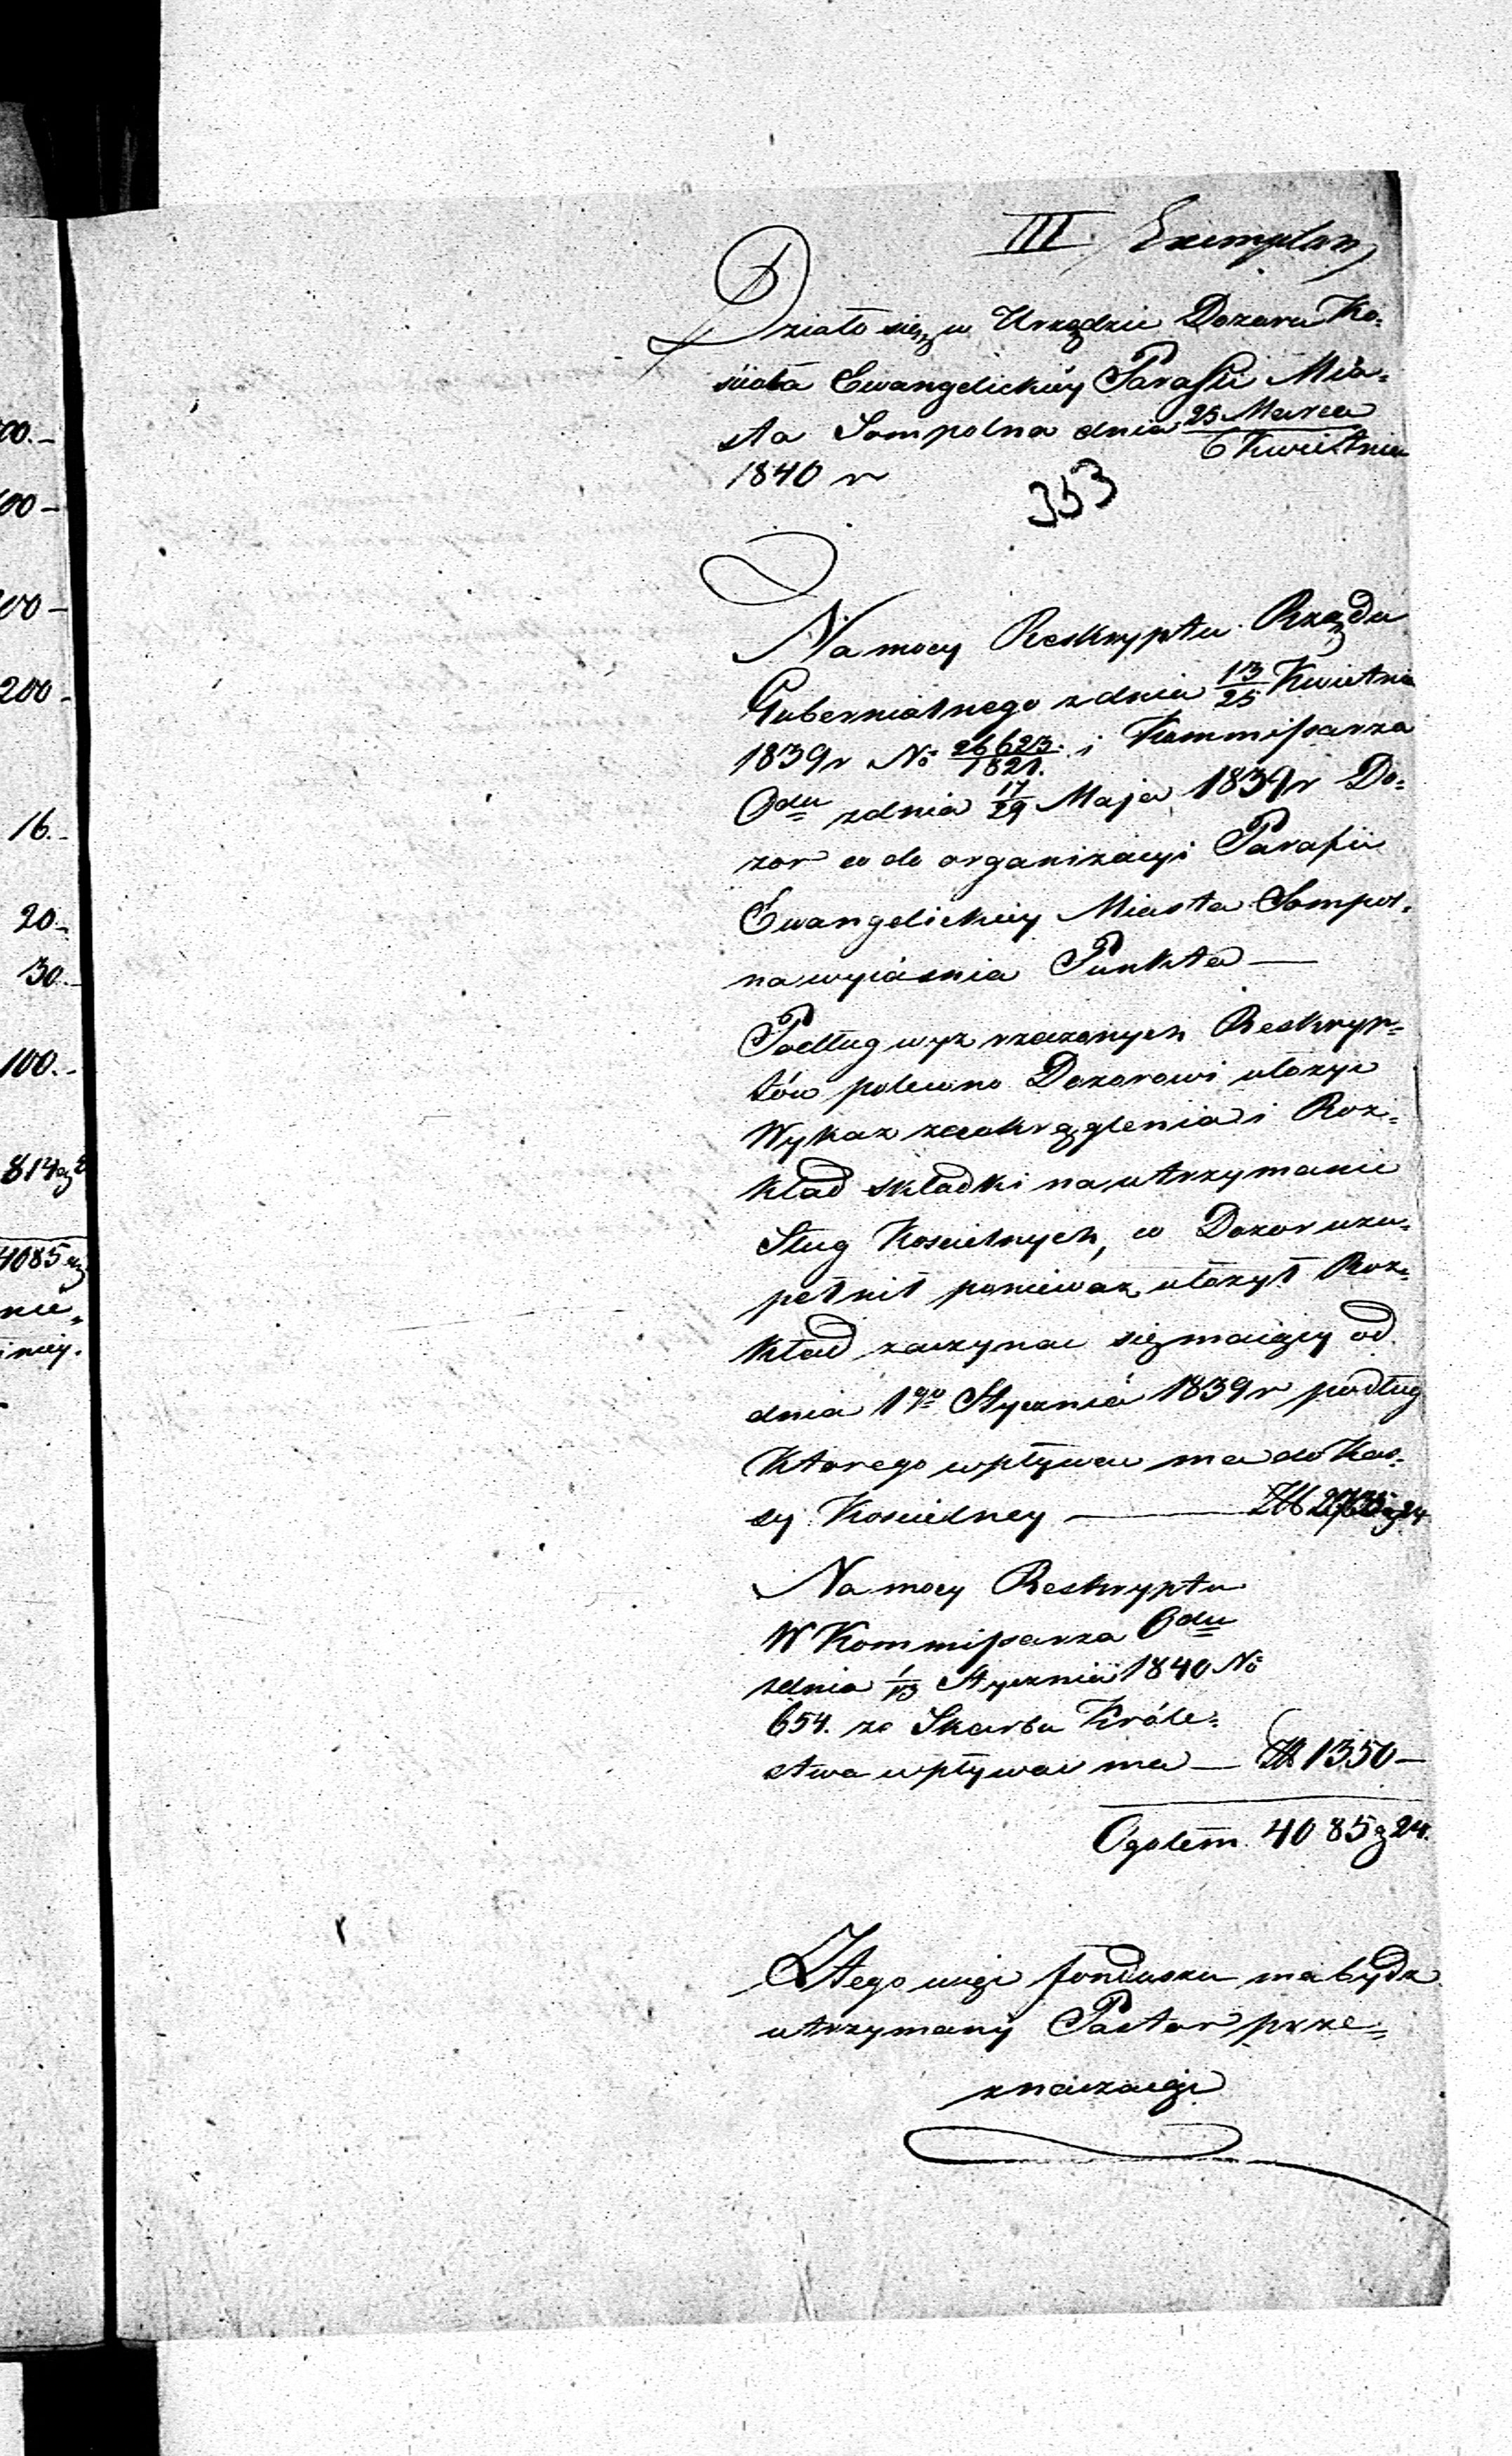 III Exemplarz
Działo się w Urzędzie Dozoru Ko=
ścioła Ewangelickiey Parafii Mia=
sta Sompolna dnia 25 Marca / 6 Kwietnia
1840 r
353
Na mocy Reskryptu Rządu
Gubernialnego z dnia 13/25 Kwietnia
1839 r No 26623/1821. i Kommissarza
Odu z dnia 17/29 Maja 1839 r Do=
zor co do organizacyi Parafii
Ewangelickiey Miasta Sompol=
na wyiaśnia Punkta —
Podług wyż rzeczonych Reskryp=
tów polecono Dozorowi ułożyć
Wykaz zaokrąglenia i Roz=
kład składki na utrzymanie
Sług Kościelnych, co Dozor uzu=
pełnił ponieważ ułożył Roz=
kład zaczynać się maiący od
dnia 1go Stycznia 1839 r podług
Ktorego wpływać ma do Kas=
sy Kościelney — Złt 2735 g 24
Na mocy Reskryptu
W Kommissarza Odu
z dnia 1/13 Stycznia 1840 No
654. ze Skarbu Króle=
stwa wpływać ma — Złt 1350 —
Ogołem 4085 g 24.
Z tego więc fonduszu ma bydz
utrzymany Pastor prze=
znaczaiąc
00.-
00-
00-
200-
16.-
20.-
30.-
100.-
814 g 2
4085 g
nie=
iney.